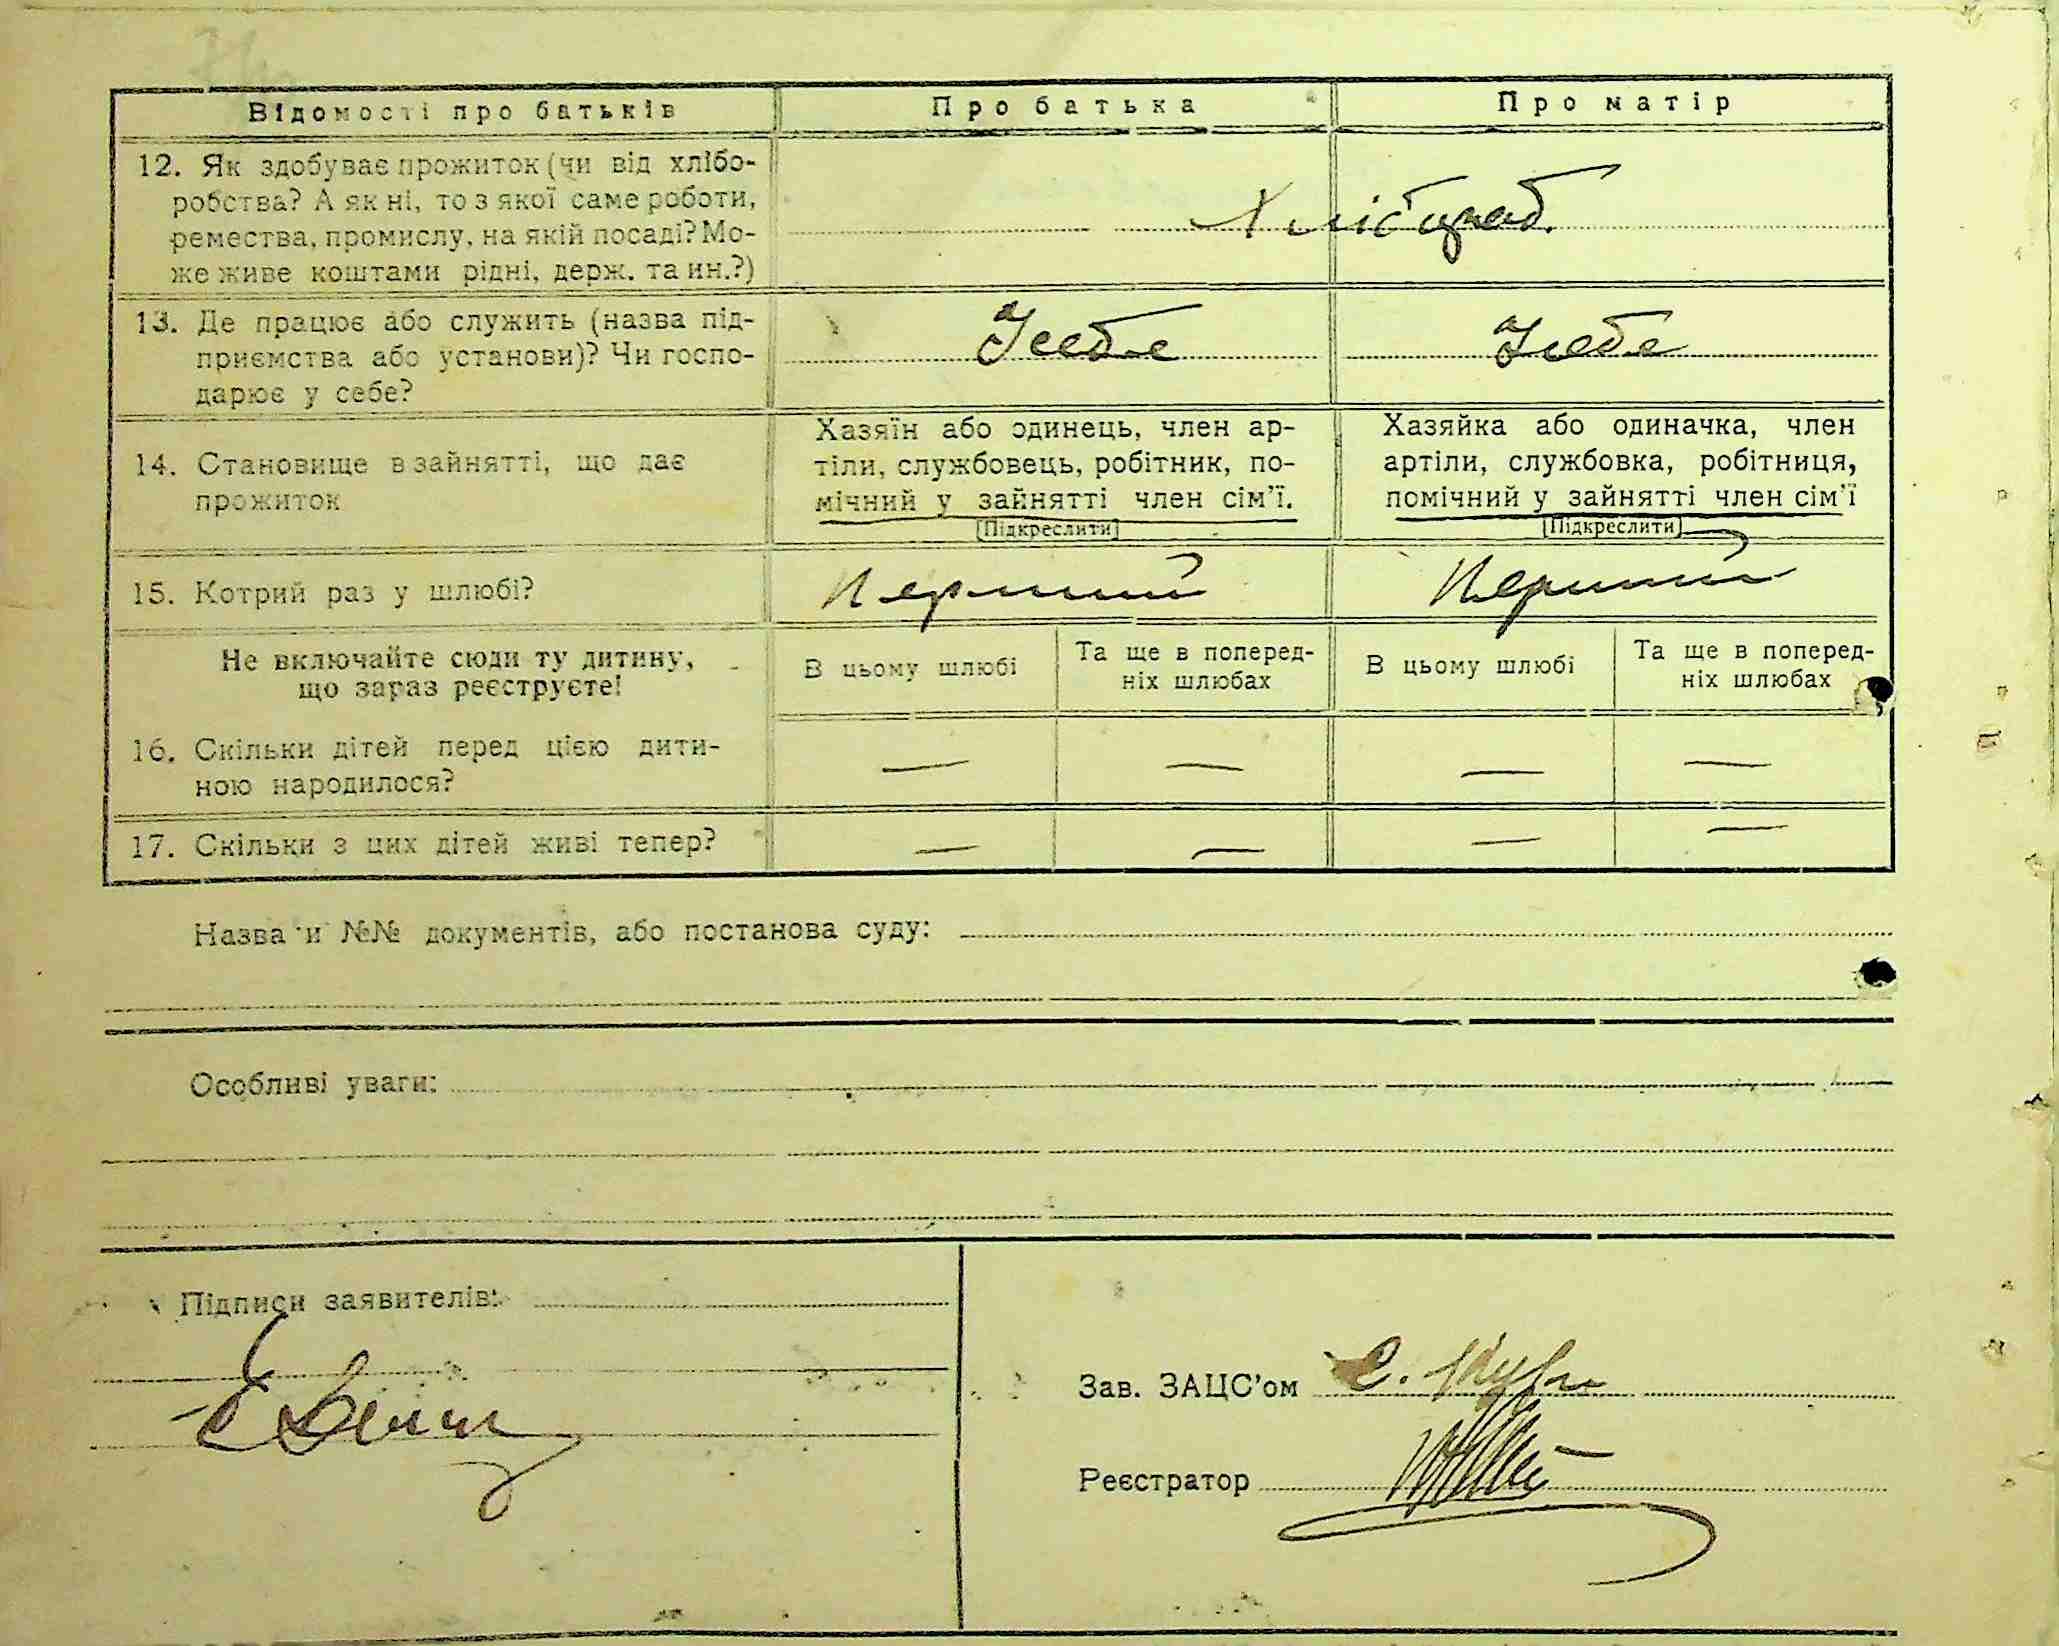 Відомості про батьків
Про батька
Про матір
12. Як здобуває прожиток (чи від хлібо-
робства? А як ні, то з якої саме роботи,
ремества, промислу, на якій посаді? Мо-
же живе коштами рідні, держ. та ин.?)
13. Де працює або служить (назва під-
приємства або установи)? Чи госпо-
дарює у себе?
У себе
У себе
14. Становище в зайнятті, що дає
прожиток
Хазяїн або одинець, член ар-
тіли, службовець, робітник, по-
мічний у зайнятті член сім'ї.
(Підкреслити)
Хазяйка або одиначка, член
артіли, службовка, робітниця,
помічний у зайнятті член сім'ї
(Підкреслити)
15. Котрий раз у шлюбі?
Перший
Перший
Не включайте сюди ту дитину,
що зараз реєструєте!
В цьому шлюбі
Та ще в поперед-
ніх шлюбах
В цьому шлюбі
Та ще в поперед-
ніх шлюбах
16. Скільки дітей перед цією дити-
ною народилося?
— — — —
17. Скільки з цих дітей живі тепер?
— — — —
Назва и №№ документів, або постанова суду:
Особливі уваги:
Підписи заявителів:
Зав. ЗАЦС'ом
Реєстратор